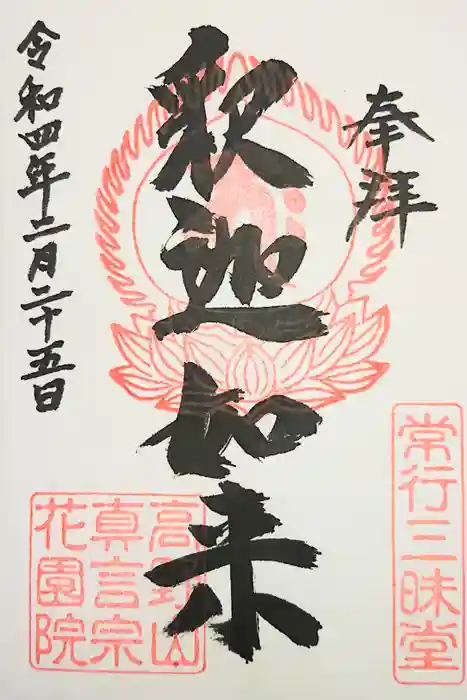 奉拝
常行三昧堂
釈迦如来
高野山
真言宗
花園院
令和四年二月二十五日